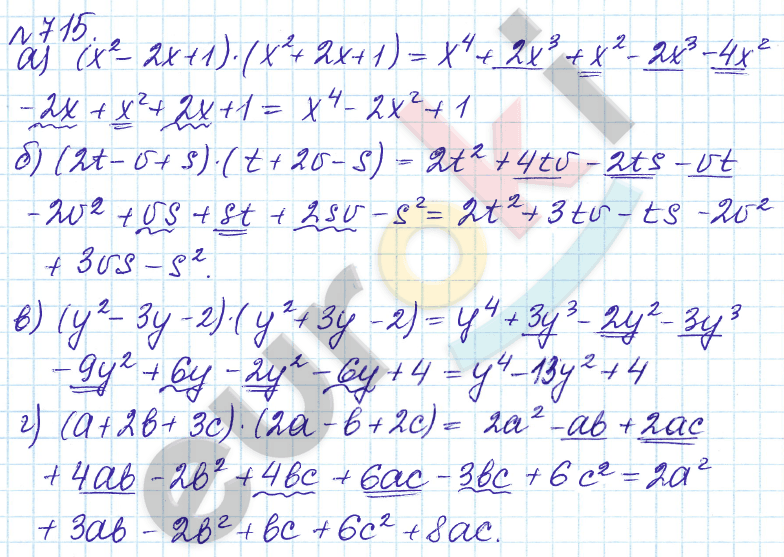 №715.
а) (x² - 2x + 1)·(x² + 2x + 1) = x⁴ + 2x³ + x² - 2x³ - 4x²
- 2x + x² + 2x + 1 = x⁴ - 2x² + 1
б) (2t - v + s)·(t + 2v - s) = 2t² + 4tv - 2ts - vt
- 2v² + vs + st + 2sv - s² = 2t² + 3tv - ts - 2v²
+ 3vs - s².
в) (y² - 3y - 2)·(y² + 3y - 2) = y⁴ + 3y³ - 2y² - 3y³
- 9y² + 6y - 2y² - 6y + 4 = y⁴ - 13y² + 4
г) (a + 2b + 3c)·(2a - b + 2c) = 2a² - ab + 2ac
+ 4ab - 2b² + 4bc + 6ac - 3bc + 6c² = 2a²
+ 3ab - 2b² + bc + 6c² + 8ac.
euroki